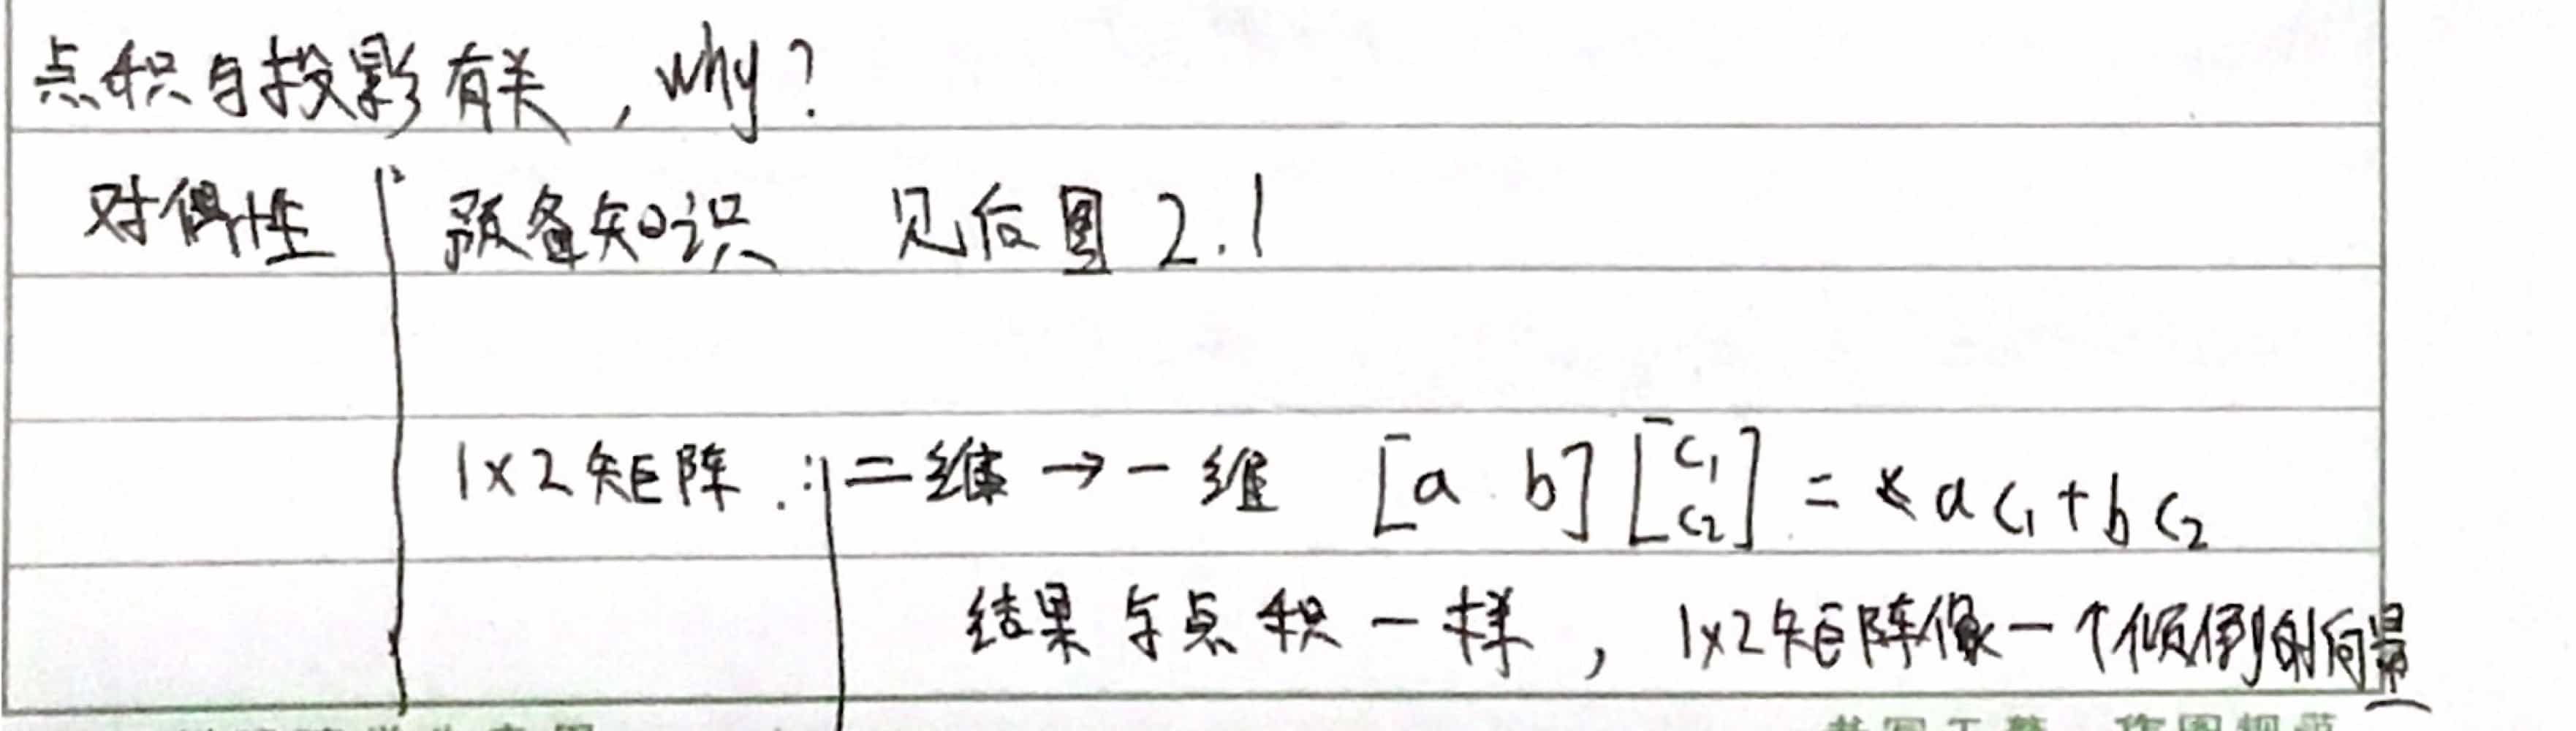 点积与投影有关，why？
对偶性 预备知识 见后图 2.1
1×2矩阵：二维→一维 [a b] [c₁ c₂] = ac₁+bc₂
结果与点积一样，1×2矩阵像一个倾倒的向量